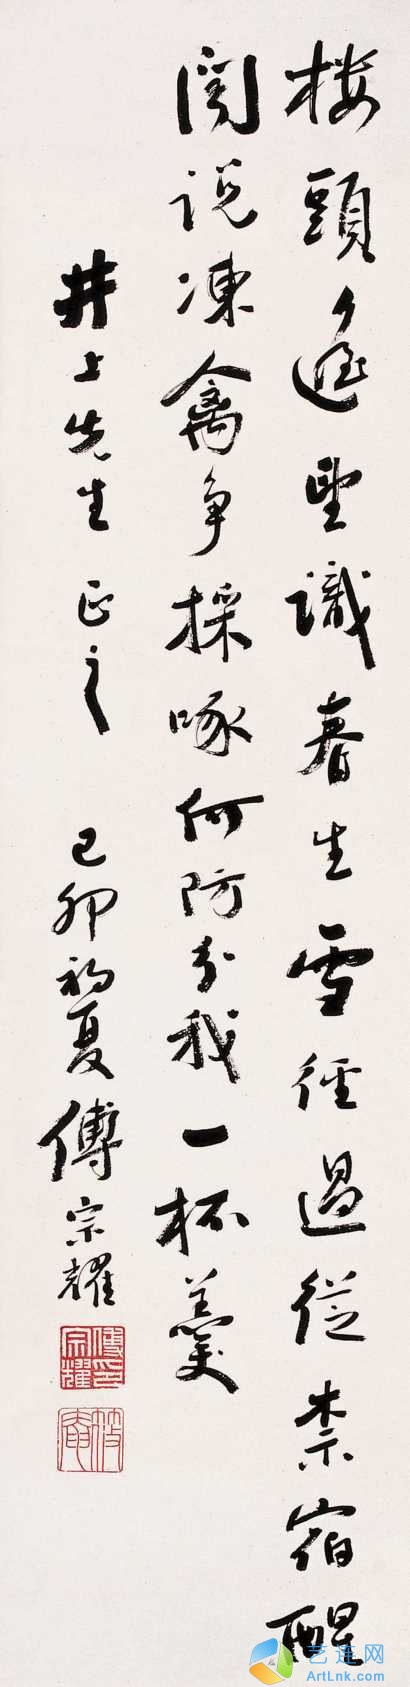 楼頭遥望識春生雪徑過從禁宿醒
聞説凍禽争採啄何防分我一杯羹
井上先生正之 己卯初夏傅宗耀
傅印宗耀
艺连网
ArtLnk.com